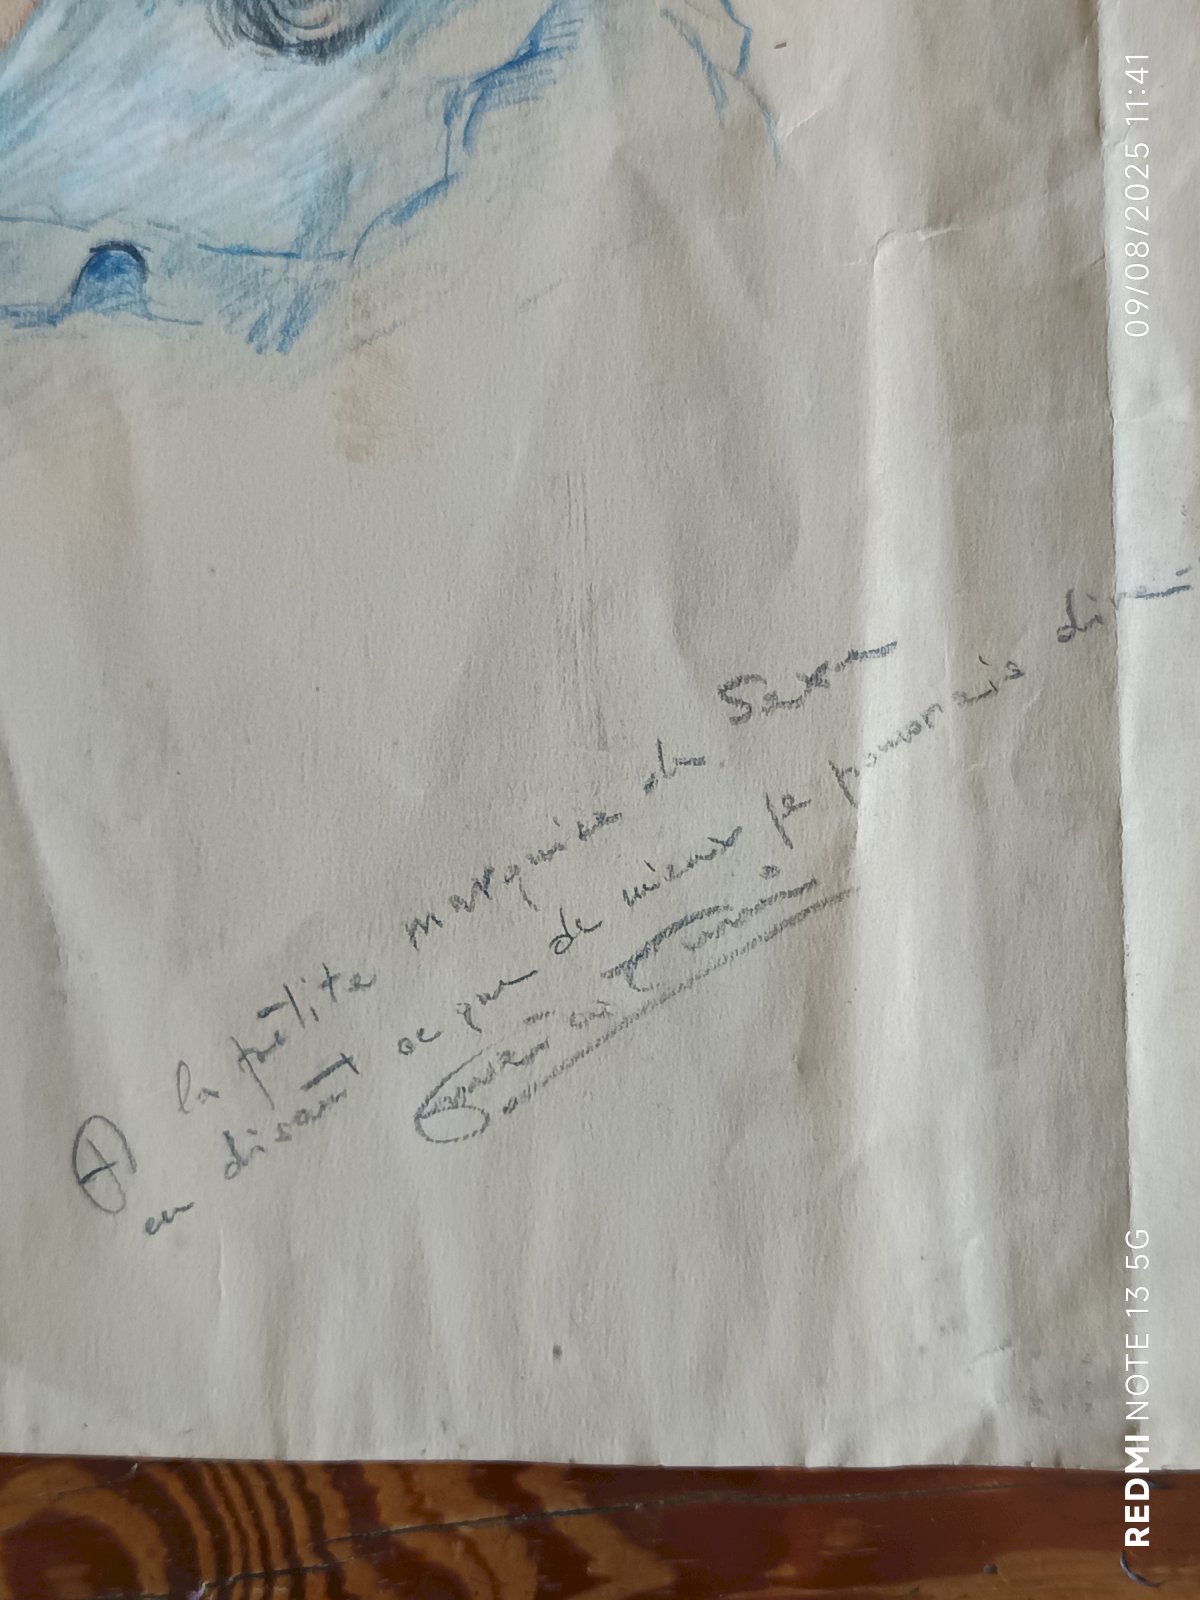 A la petite marquise de Saxe
en disant ce que de mieux je pourrais dire
09/08/2025 11:41
REDMI NOTE 13 5G